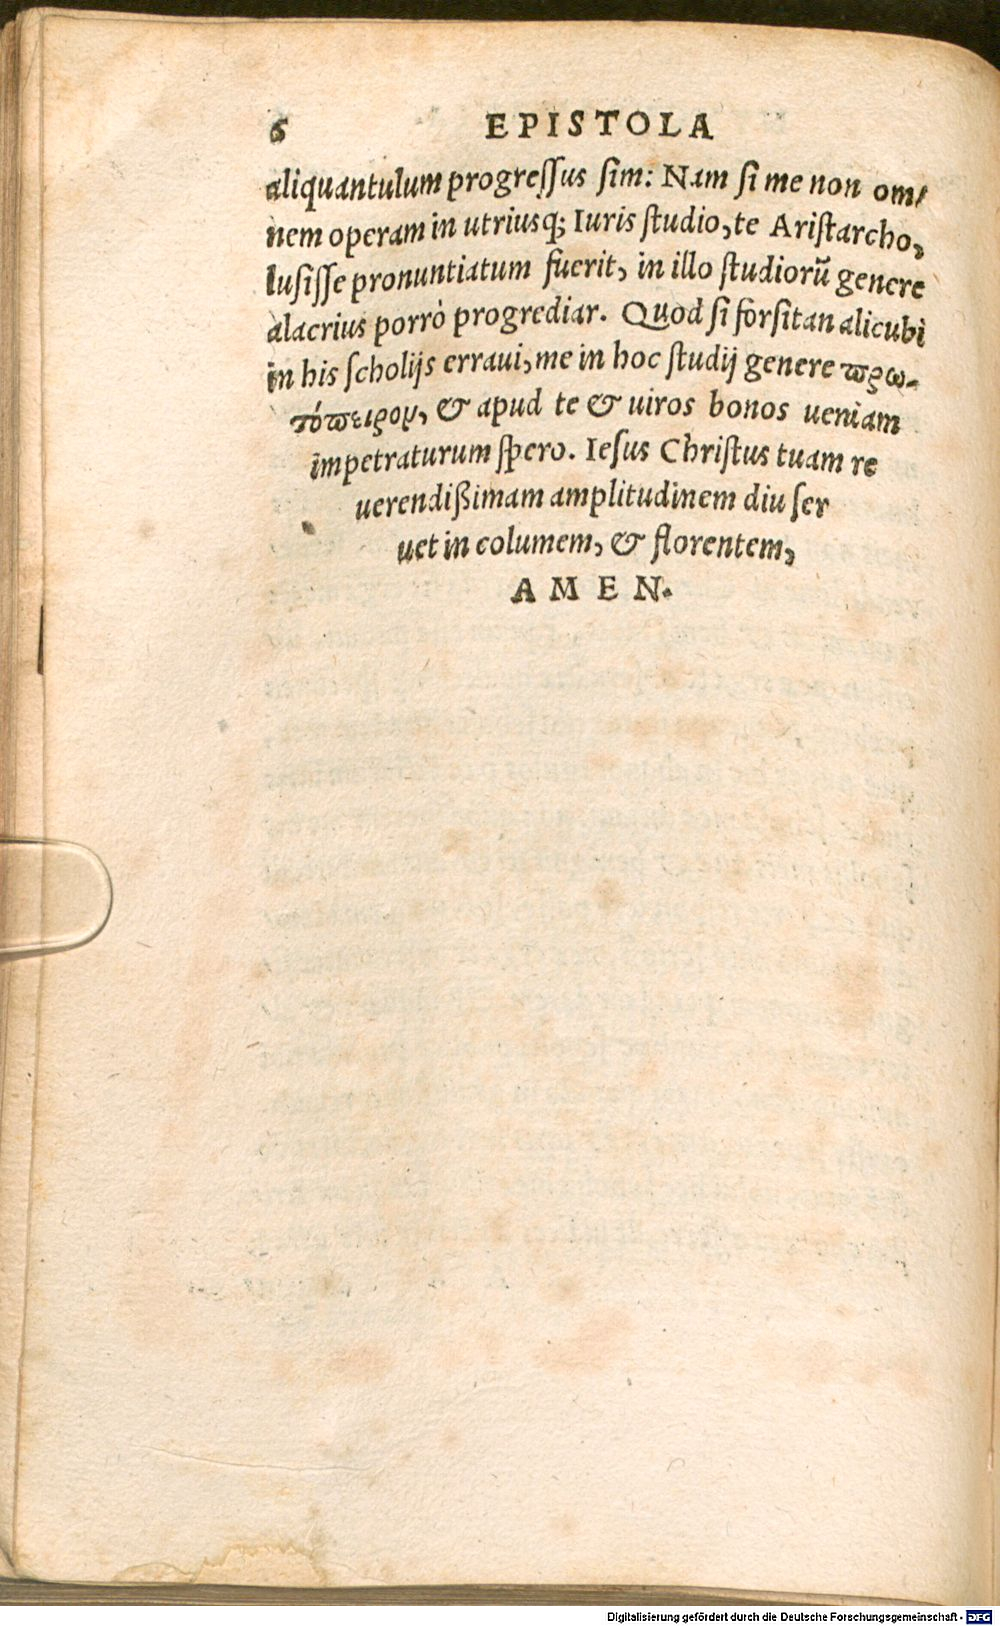 6 EPISTOLA
aliquantulum progreſſus ſim: Nam ſi me non om/
nem operam in utriusq; Iuris ſtudio, te Ariſtarcho,
luſiſſe pronuntiatum fuerit, in illo ſtudiorũ genere
alacrius porrò progrediar. Quod ſi forſitan alicubi
in his ſcholijs erraui, me in hoc ſtudij genere ϖρω-
τόϖειρον, & apud te & uiros bonos ueniam
impetraturum ſpero. Ieſus Chriſtus tuam re
uerendißimam amplitudinem diu ſer
uet in columem, & florentem,
AMEN.
Digitalisierung gefördert durch die Deutsche Forschungsgemeinschaft - DFG